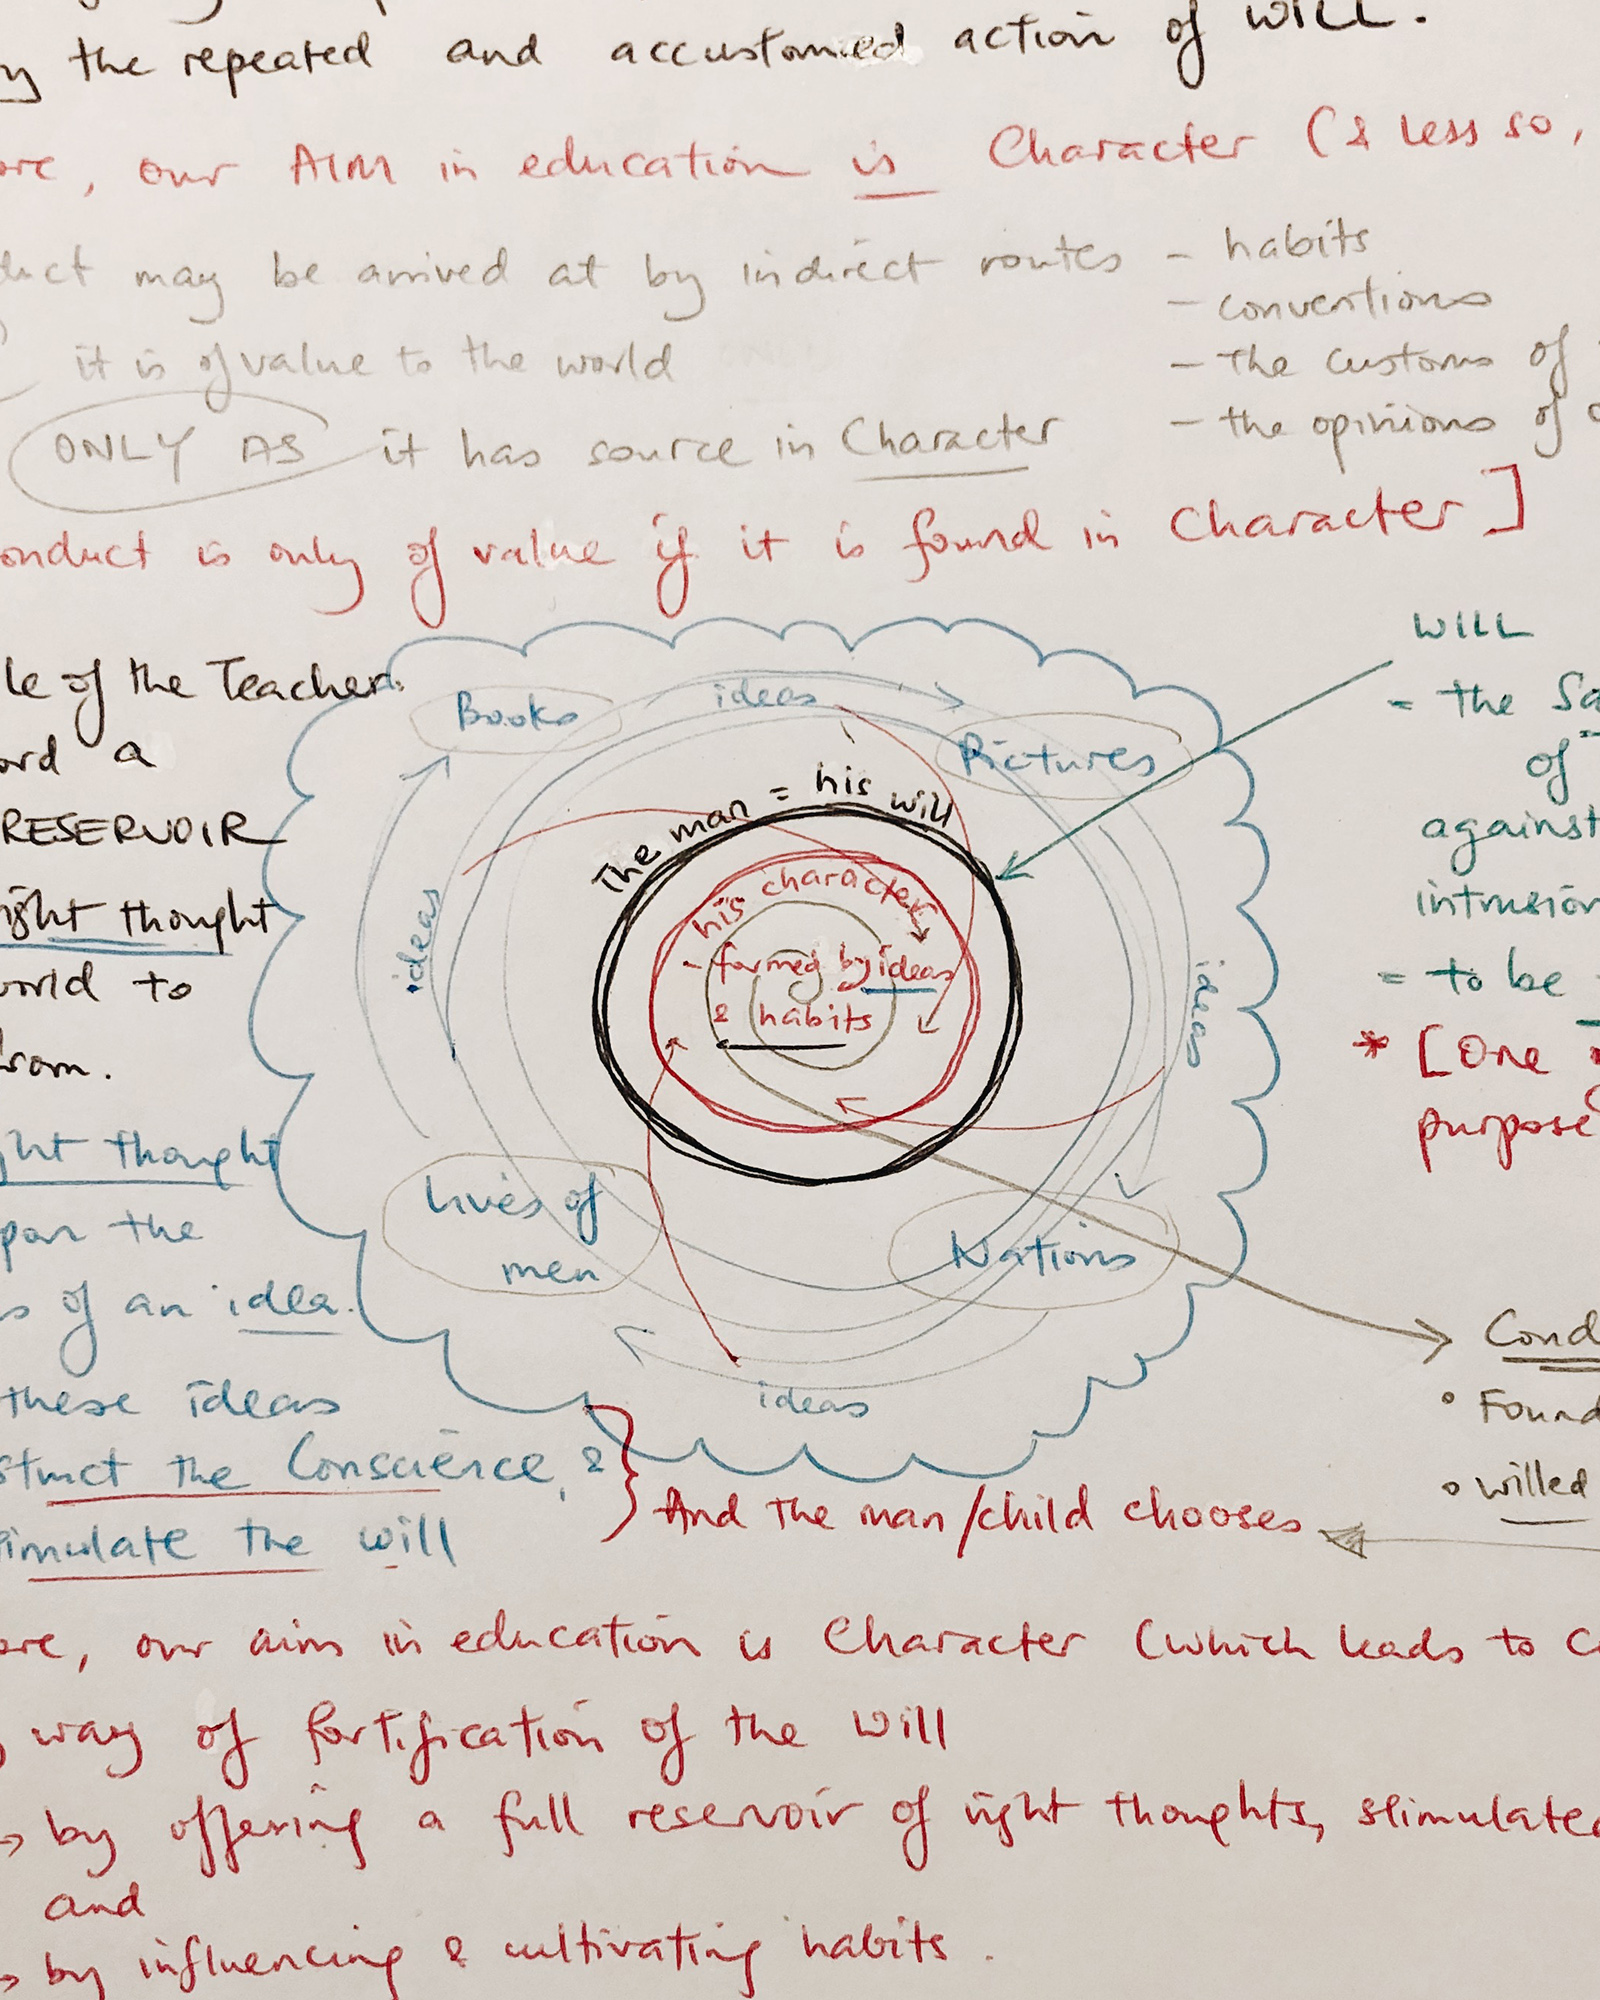 by the repeated and accustomed action of will.
our AIM in education is Character (& less so,
may be arrived at by indirect routes - habits
- conventions
it is of value to the world
- the customs of
ONLY AS it has source in Character
- the opinions of
onduct is only of value if it is found in Character]
le of the Teacher.
a
RESERVOIR
ight thought
world to
from.
ght thought
upon the
of an idea.
these ideas
struct the Conscience, &
stimulate the will
Books
ideas
Pictures
ideas
ideas
Lives of
men
Nations
ideas
The man = his will
his character
- formed by ideas
& habits
WILL
= the Sa
of
against
intrusion
= to be
* [One
purpose
Cond
• Found
• willed
} And the man/child chooses
ore, our aim in education is Character (which leads to c
way of fortification of the will
→ by offering a full reservoir of right thoughts, stimulate
and
→ by influencing & cultivating habits.